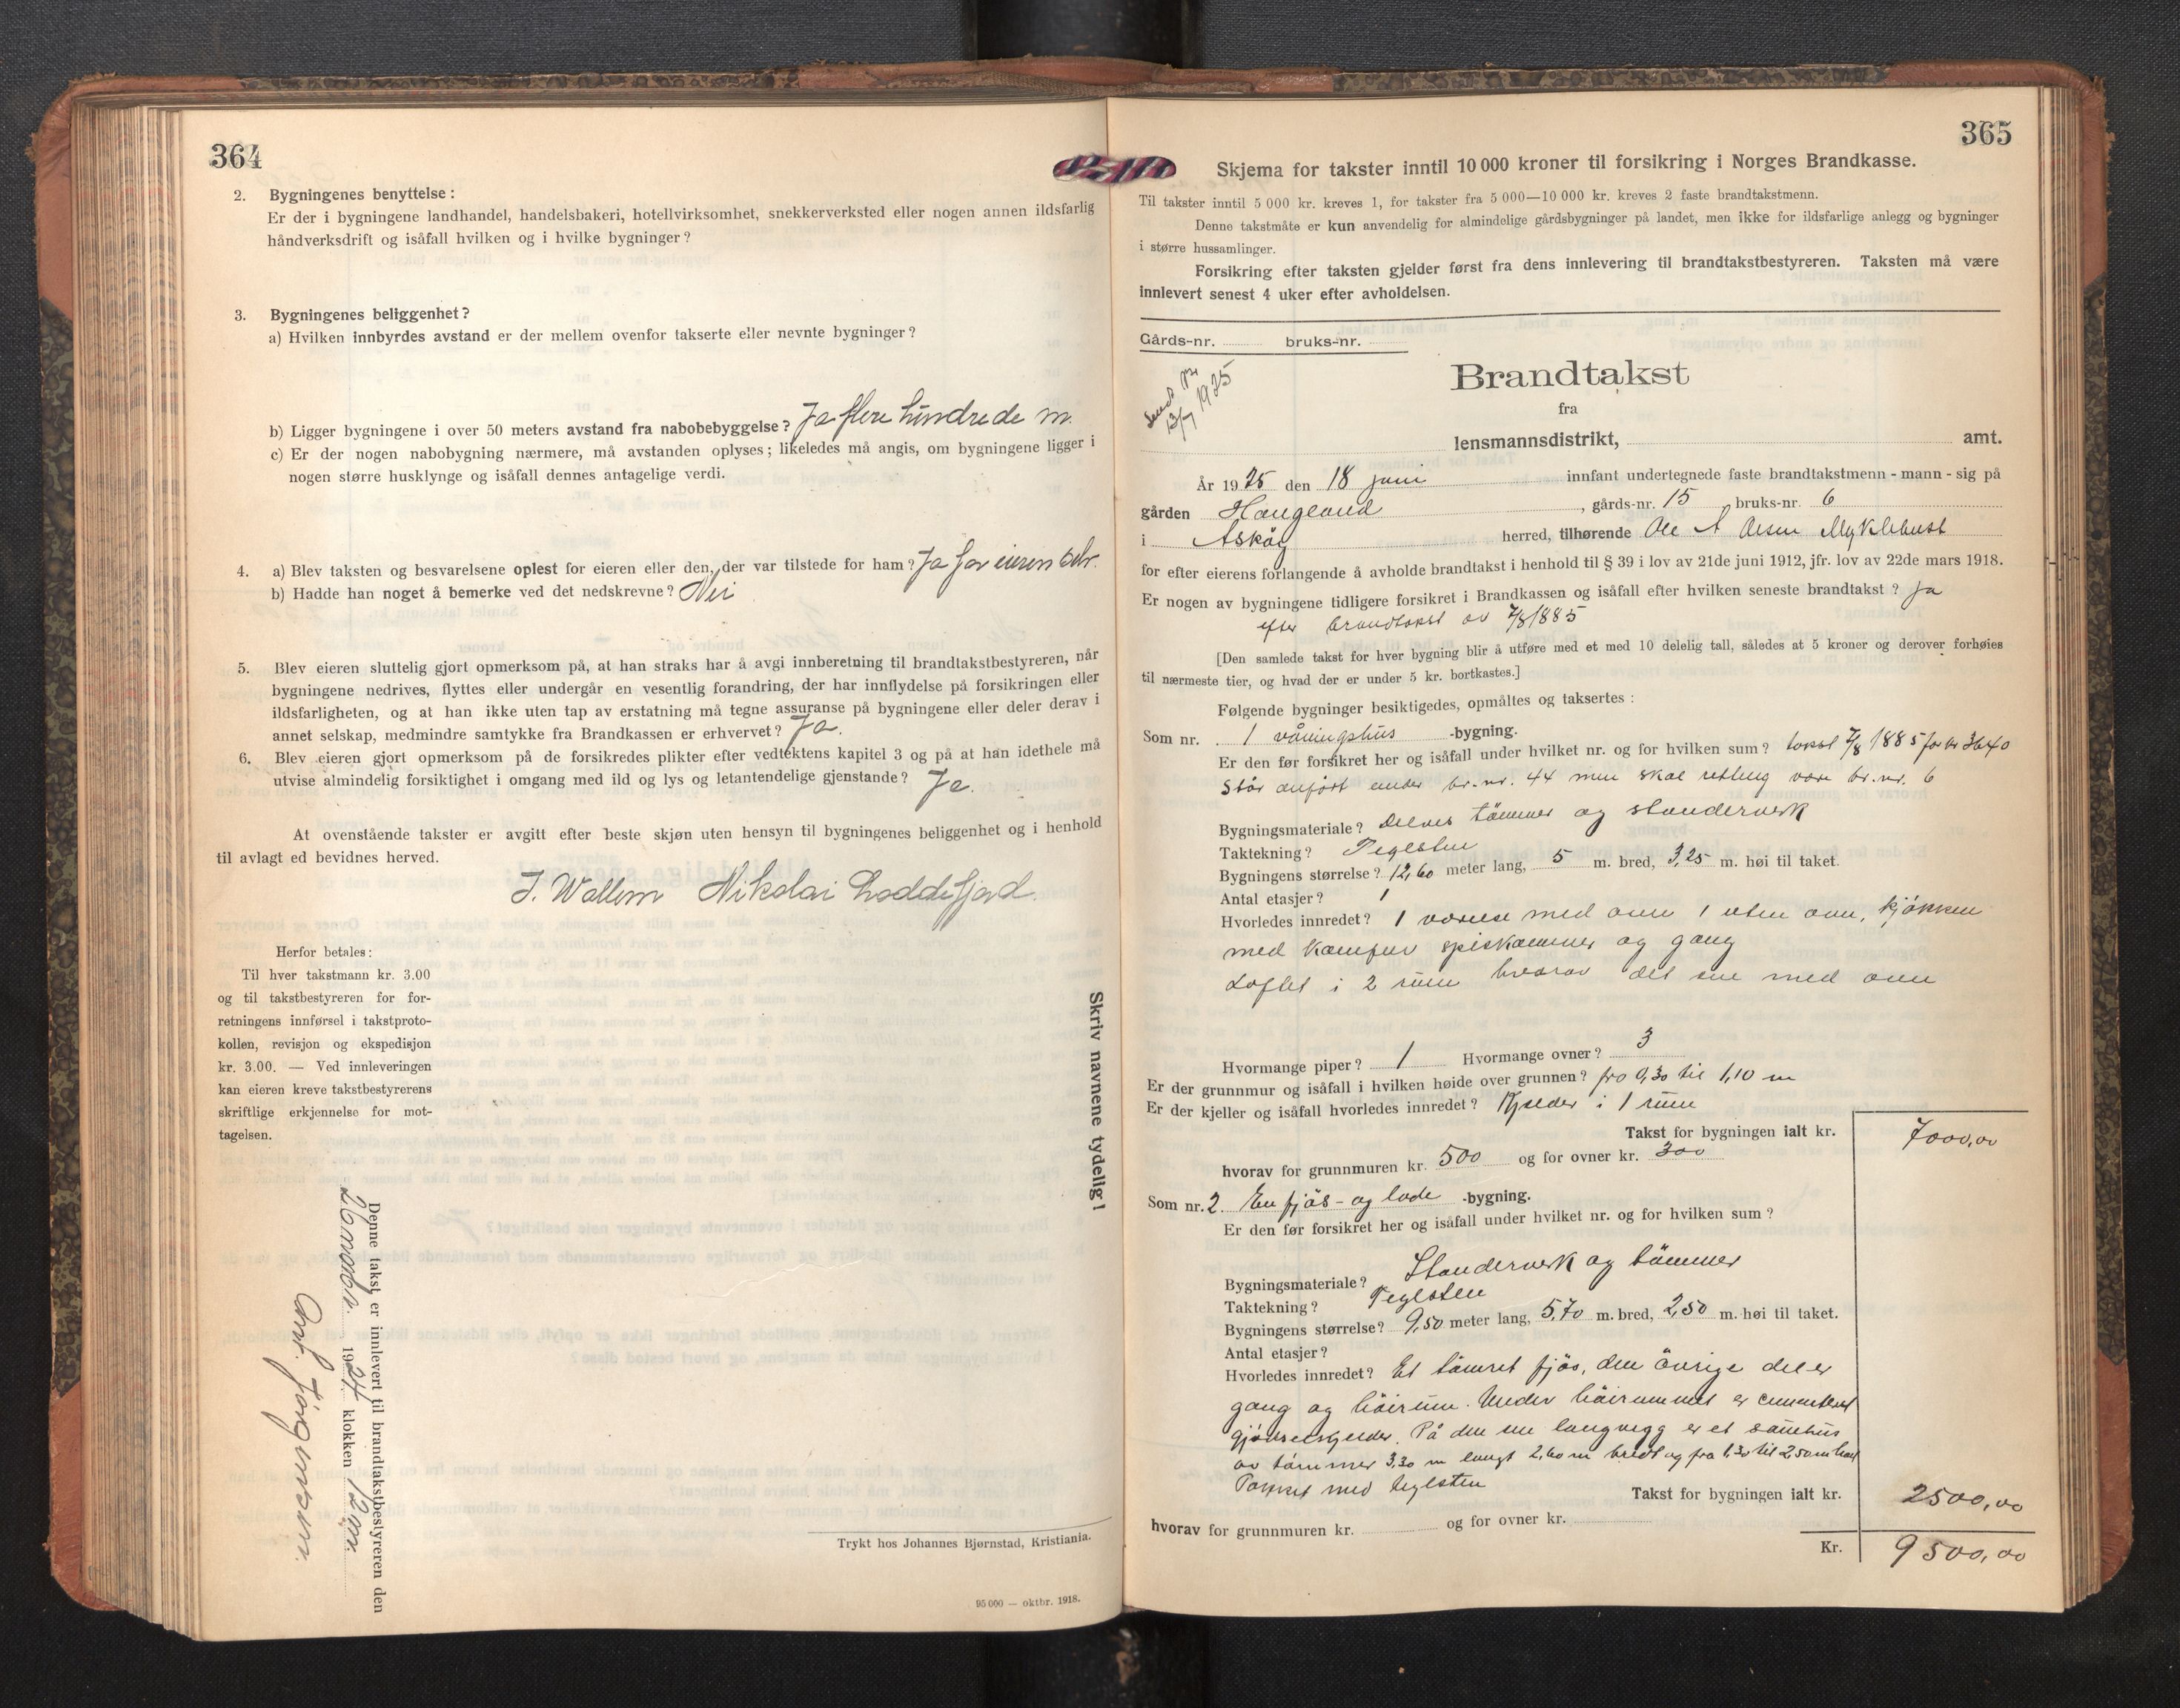 364
2. Bygningenes benyttelse:
Er der i bygningene landhandel, handelsbakeri, hotellvirksomhet, snekkerverksted eller nogen annen ildsfarlig
håndverksdrift og isåfall hvilken og i hvilke bygninger?
3. Bygningenes beliggenhet?
a) Hvilken innbyrdes avstand er der mellem ovenfor takserte eller nevnte bygninger?
b) Ligger bygningene i over 50 meters avstand fra nabobebyggelse? Ja flere hundrede m.
c) Er der nogen nabobygning nærmere, må avstanden oplyses; likeledes må angis, om bygningene ligger i
nogen større husklynge og isåfall dennes antagelige verdi.
4. a) Blev taksten og besvarelsene oplest for eieren eller den, der var tilstede for ham? Ja for eieren selv.
b) Hadde han noget å bemerke ved det nedskrevne? Nei
5. Blev eieren sluttelig gjort opmerksom på, at han straks har å avgi innberetning til brandtakstbestyreren, når
bygningene nedrives, flyttes eller undergår en vesentlig forandring, der har innflydelse på forsikringen eller
ildsfarligheten, og at han ikke uten tap av erstatning må tegne assuranse på bygningene eller deler derav i
annet selskap, medmindre samtykke fra Brandkassen er erhvervet? Ja.
6. Blev eieren gjort opmerksom på de forsikredes plikter efter vedtektens kapitel 3 og på at han idethele må
utvise almindelig forsiktighet i omgang med ild og lys og letantendelige gjenstande? Ja.
At ovenstående takster er avgitt efter beste skjøn uten hensyn til bygningenes beliggenhet og i henhold
til avlagt ed bevidnes herved.
J. Wallem Nikolai Loddefjord.
Herfor betales:
Til hver takstmann kr. 3.00
og til takstbestyreren for for-
retningens innførsel i takstproto-
kollen, revisjon og ekspedisjon
kr. 3.00. — Ved innleveringen
kan eieren kreve takstbestyrerens
skriftlige erkjennelse for mot-
tagelsen.
Skriv navnene tydelig!
Denne takst er innlevert til brandtakstbestyreren den
26 1924 klokken 12
Jørgensen
Trykt hos Johannes Bjørnstad, Kristiania.
95 000 — oktbr. 1918.
365
Skjema for takster inntil 10 000 kroner til forsikring i Norges Brandkasse.
Til takster inntil 5 000 kr. kreves 1, for takster fra 5 000—10 000 kr. kreves 2 faste brandtakstmenn.
Denne takstmåte er kun anvendelig for almindelige gårdsbygninger på landet, men ikke for ildsfarlige anlegg og bygninger
i større hussamlinger.
Forsikring efter taksten gjelder først fra dens innlevering til brandtakstbestyreren. Taksten må være
innlevert senest 4 uker efter avholdelsen.
Gårds-nr. bruks-nr.
Sendt
13/7 1925
Brandtakst
fra
lensmannsdistrikt, amt.
År 1925 den 18 juni innfant undertegnede faste brandtakstmenn - mann - sig på
gården Haugland, gårds-nr. 15, bruks-nr. 6
i Askøy herred, tilhørende Ole A Olsen Myklebust
for efter eierens forlangende å avholde brandtakst i henhold til § 39 i lov av 21de juni 1912, jfr. lov av 22de mars 1918.
Er nogen av bygningene tidligere forsikret i Brandkassen og isåfall efter hvilken seneste brandtakst? Ja
efter brandtakst av 7/8 1885
[Den samlede takst for hver bygning blir å utføre med et med 10 delelig tall, således at 5 kroner og derover forhøies
til nærmeste tier, og hvad der er under 5 kr. bortkastes.]
Følgende bygninger besiktigedes, opmåltes og taksertes:
Som nr. 1 våningshus -bygning.
Er den før forsikret her og isåfall under hvilket nr. og for hvilken sum? takst 7/8 1885 for kr 3640
Står anført under br.nr. 44 men skal rettelig være br.nr. 6
Bygningsmateriale? Delvis tømmer og standerverk
Taktekning? Teglsten
Bygningens størrelse? 12,60 meter lang, 5 m. bred, 3,25 m. høi til taket.
Antal etasjer? 1
Hvorledes innredet? 1 værelse med ovn 1 uten ovn, kjøkken
med komfur spiskammer og gang
Loftet i 2 rum hvorav det ene med ovn
Hvormange piper? 1 Hvormange ovner? 3
Er der grunnmur og isåfall i hvilken høide over grunnen? fra 0,30 til 1,10 m
Er der kjeller og isåfall hvorledes innredet? Kjelder i 1 rum
Takst for bygningen ialt kr. 7000,00
hvorav for grunnmuren kr. 500 og for ovner kr. 300
Som nr. 2. En fjøs- og lade -bygning.
Er den før forsikret her og isåfall under hvilket nr. og for hvilken sum?
Bygningsmateriale? Standerverk og tømmer
Taktekning? Teglsten
Bygningens størrelse? 9,50 meter lang, 5,70 m. bred, 2,50 m. høi til taket.
Antal etasjer?
Hvorledes innredet? Et tømret fjøs, den øvrige del er
gang og høirum. Under høirummet er cementeret
gjødselskjelder. På den ene langvegg er et sauehus
av tømmer 3,30 m langt 2,60 m bredt og fra 1,30 til 2,50 m høit
Tækket med teglsten
Takst for bygningen ialt kr. 2500,00
hvorav for grunnmuren kr. og for ovner kr.
Kr. 9500,00